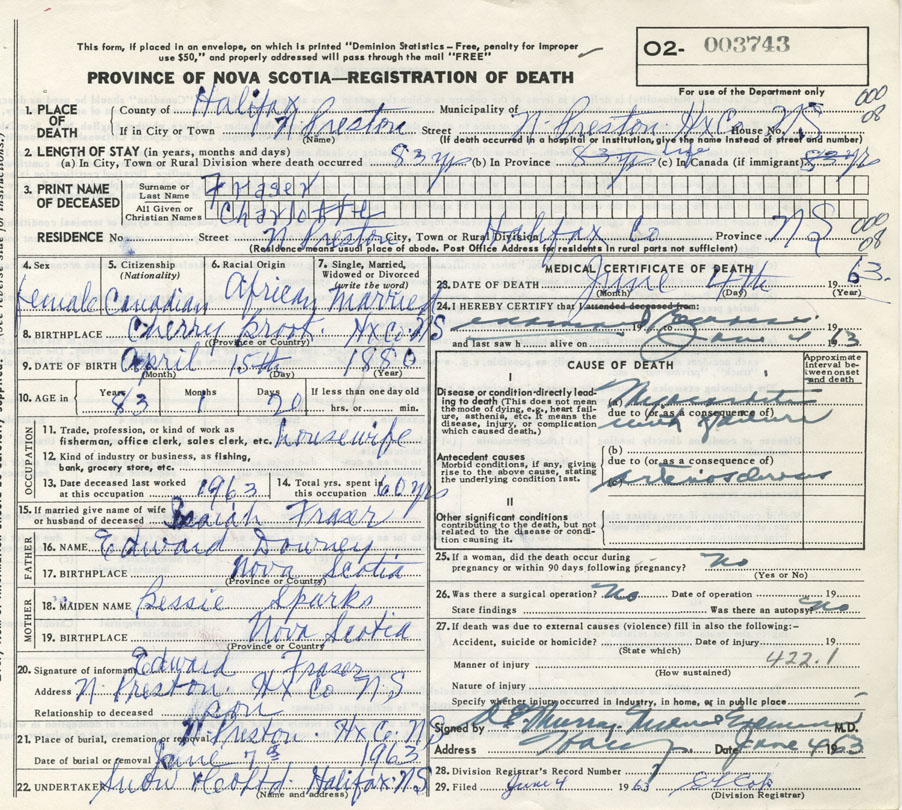 This form, if placed in an envelope, on which is printed "Dominion Statistics – Free, penalty for improper
use $50," and properly addressed will pass through the mail "FREE"
PROVINCE OF NOVA SCOTIA—REGISTRATION OF DEATH
O2- 003743
For use of the Department only
000
08
1. PLACE OF DEATH
County of Halifax Municipality of N. Preston Hx Co. NS
If in City or Town N Preston Street House No.
(Name) (If death occurred in a hospital or institution, give the name instead of street and number)
2. LENGTH OF STAY (in years, months and days)
(a) In City, Town or Rural Division where death occurred 83 yrs (b) In Province 83 yrs life (c) In Canada (if immigrant) 83 yrs
3. PRINT NAME OF DECEASED
Surname or Last Name Fraser
All Given or Christian Names Charlotte
RESIDENCE No. Street N Preston City, Town or Rural Division Halifax Co Province NS
(Residence means usual place of abode. Post Office Address for residents in rural parts not sufficient)
000
08
4. Sex female
5. Citizenship (Nationality) Canadian
6. Racial Origin African
7. Single, Married, Widowed or Divorced (write the word) Married
8. BIRTHPLACE Cherry Brook Hx Co. NS
(Province or Country)
9. DATE OF BIRTH April 15th 1880
(Month) (Day) (Year)
10. AGE in Years 83 Months 1 Days 20 If less than one day old hrs. or min.
OCCUPATION
11. Trade, profession, or kind of work as fisherman, office clerk, sales clerk, etc. housewife
12. Kind of industry or business, as fishing, bank, grocery store, etc.
13. Date deceased last worked at this occupation 1963
14. Total yrs. spent in this occupation 60 yrs
15. If married give name of wife or husband of deceased Isaiah Fraser
FATHER
16. NAME Edward Downey
17. BIRTHPLACE Nova Scotia
(Province or Country)
MOTHER
18. MAIDEN NAME Bessie Sparks
19. BIRTHPLACE Nova Scotia
(Province or Country)
20. Signature of informant Edward Fraser
Address N Preston. Hx Co N.S
Relationship to deceased son
21. Place of burial, cremation or removal N. Preston. Hx Co. NS
Date of burial or removal June 7th 1963
22. UNDERTAKER Snow & Co Ltd. Halifax. NS
(Name and address)
MEDICAL CERTIFICATE OF DEATH
23. DATE OF DEATH June 4th 1963.
(Month) (Day) (Year)
24. I HEREBY CERTIFY that I attended deceased from:
19 to 19
and last saw h alive on June 4 63
CAUSE OF DEATH
Approximate interval between onset and death
I
Disease or condition directly leading to death (This does not mean the mode of dying, e.g., heart failure, asthenia, etc. It means the disease, injury, or complication which caused death.)
(a)
due to (or as a consequence of)
failure
Antecedent causes
Morbid conditions, if any, giving rise to the above cause, stating the underlying condition last.
(b)
due to (or as a consequence of)
arteriosclerosis
II
Other significant conditions contributing to the death, but not related to the disease or condition causing it.
25. If a woman, did the death occur during pregnancy or within 90 days following pregnancy? no
(Yes or No)
26. Was there a surgical operation? no Date of operation 19
State findings Was there an autopsy? no
27. If death was due to external causes (violence) fill in also the following:-
Accident, suicide or homicide? Date of injury 19
(State which)
Manner of injury 422.1
(How sustained)
Nature of injury
Specify whether injury occurred in industry, in home, or in public place
Signed by Murray Medical Examiner M.D.
Address Date June 4 1963
28. Division Registrar's Record Number
29. Filed June 4 1963
(Division Registrar)